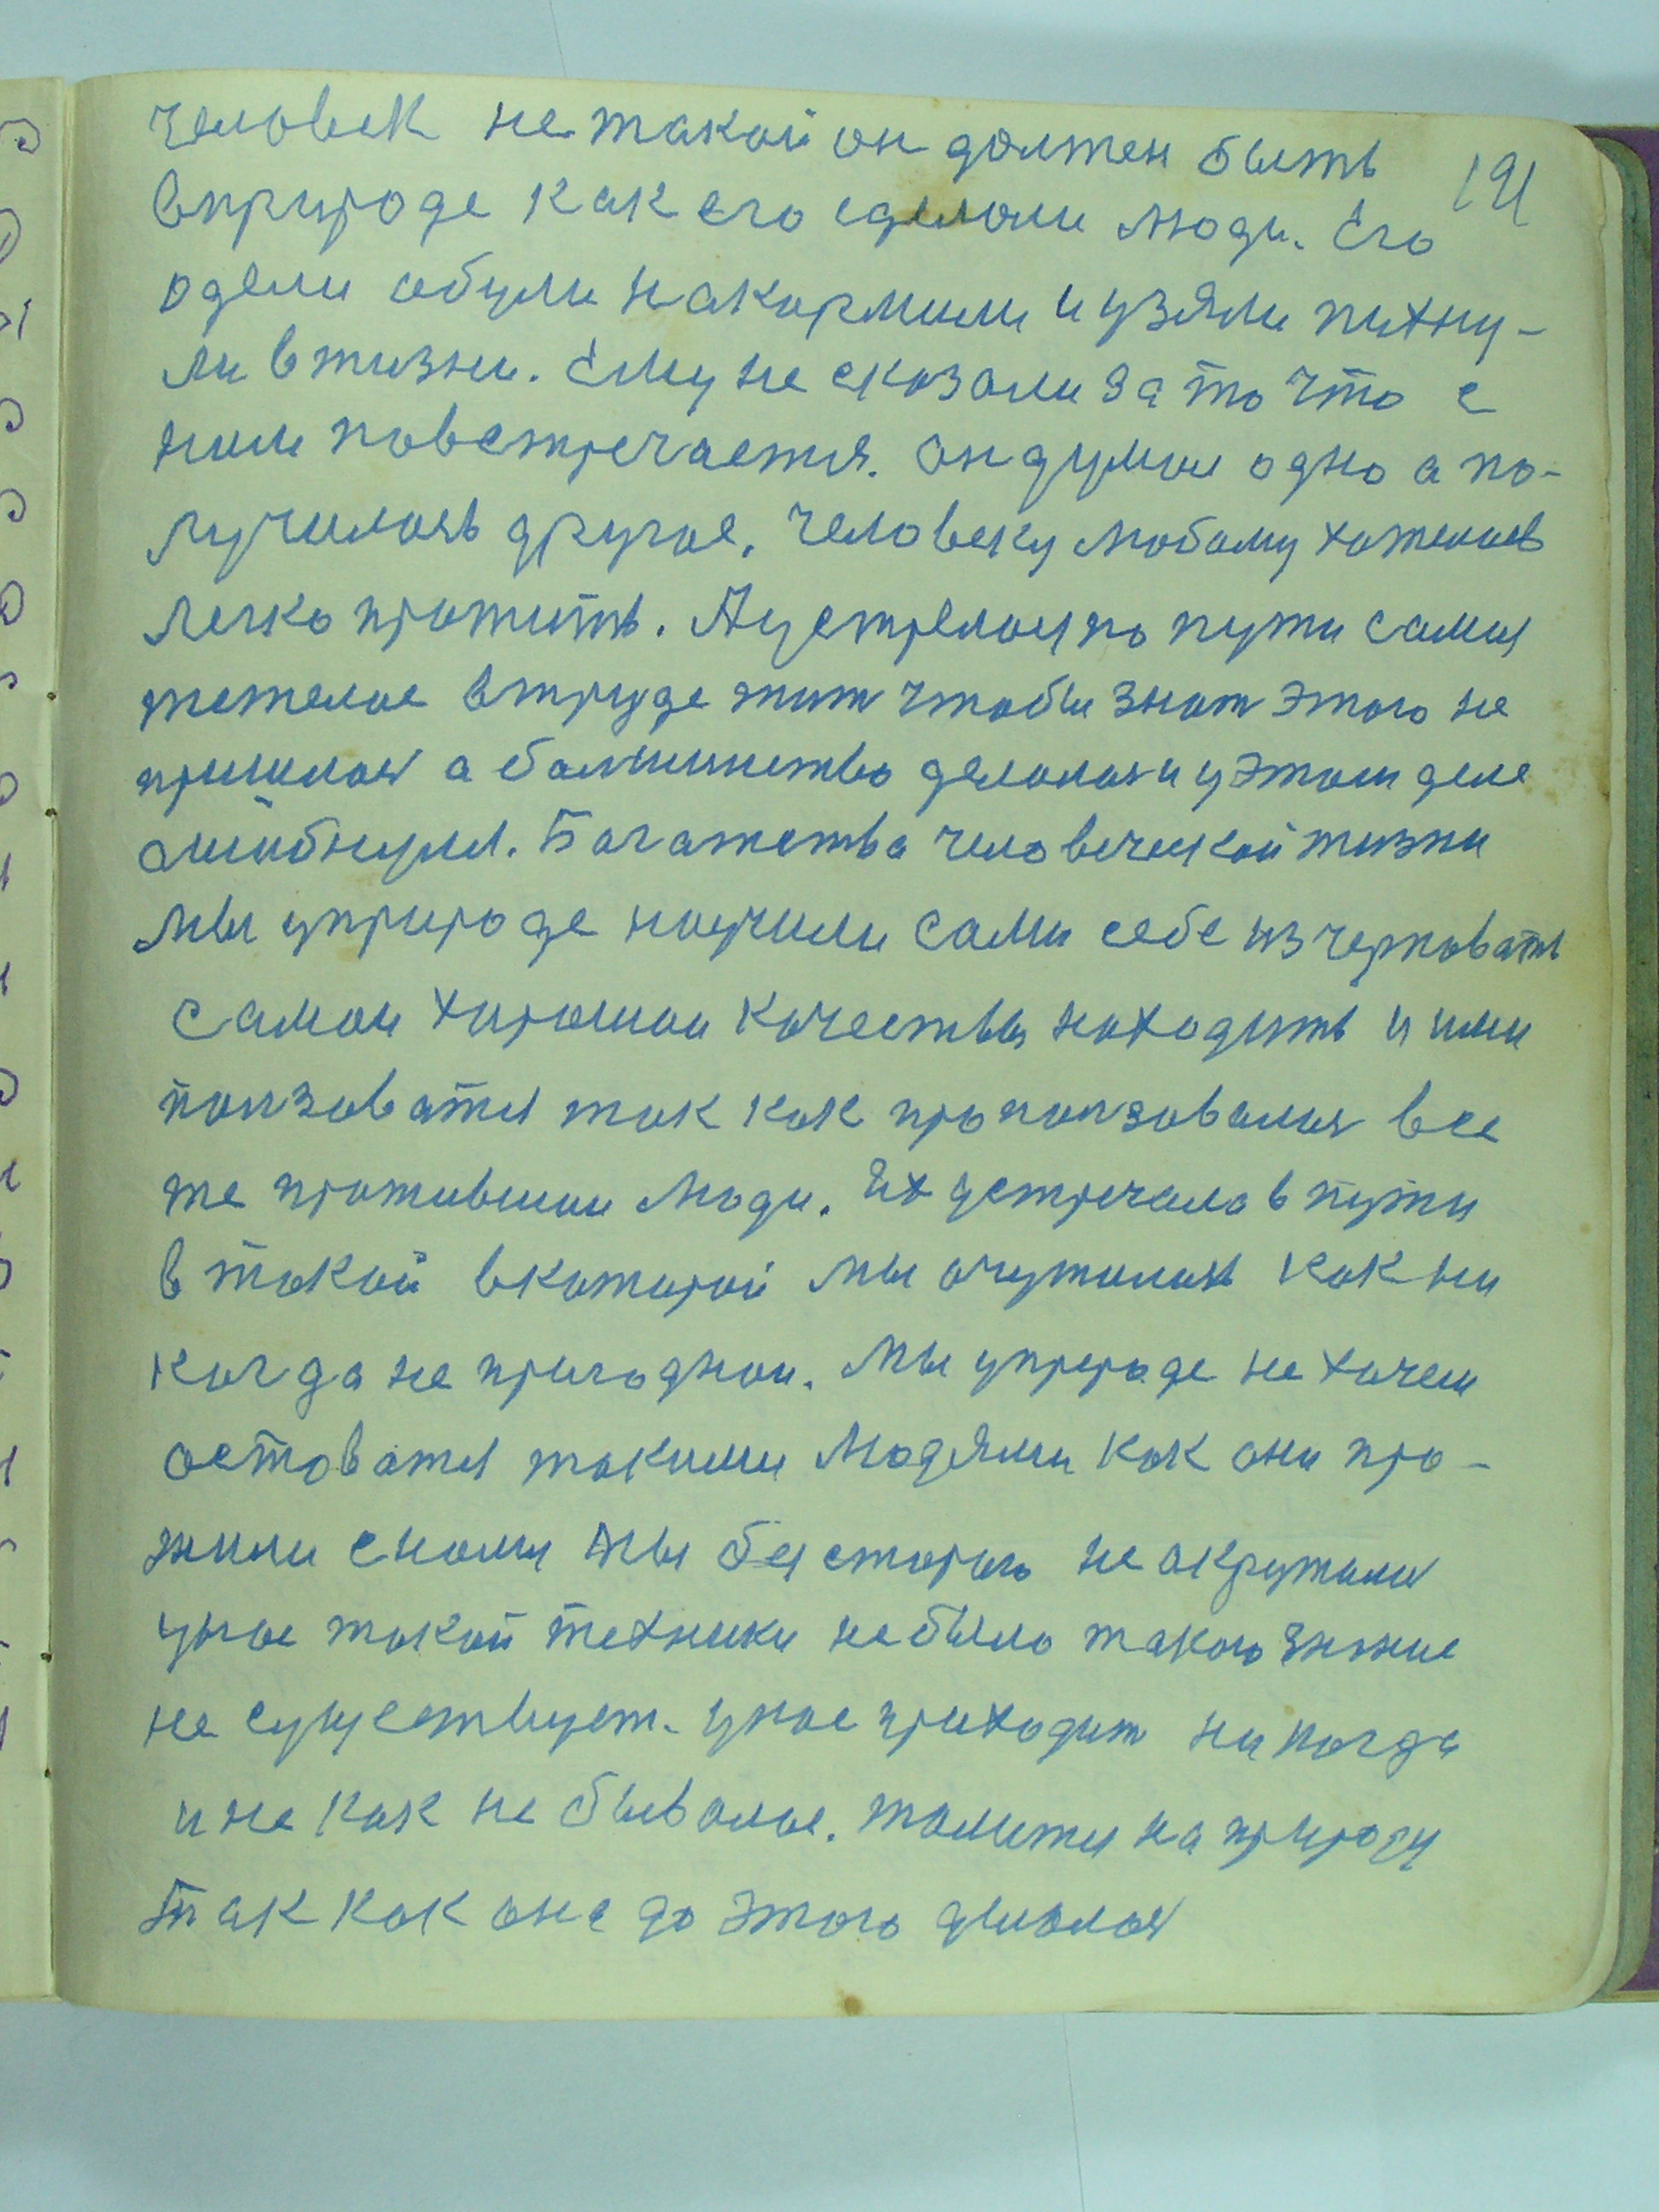 человек не такой он должен быть
191
вприроде как его сделали люди. Его
одели обули накормили и узяли пихну-
ли вжизни. Ему не сказали за то что с
ним повстречается. он думал одно а по-
лучилось другое. Человеку любому хотелось
легко прожить. А устрелося по пути самая
тежелое втруде жит чтобы знат этого не
пришлося а большинство делалося и у этом деле
ошибнулися. Багатства человеческой жизни
мы уприроде научили сами себе изчерповать
самои хорошои качества находить и ими
ползоватся так как прополозовалися все
же прожившии люди. Их устречала в пути
в такой вкоторой мы очутилися как ни
когда не пригоднои. Мы уприроде не хочем
оставатся такими людями как они про-
жили снами мы бы старого не окружали
унас такой техники не было такого знание
не существует. унас приходит ни когда
и не как не бывалое. толится на природу
так как оно до этого делалося